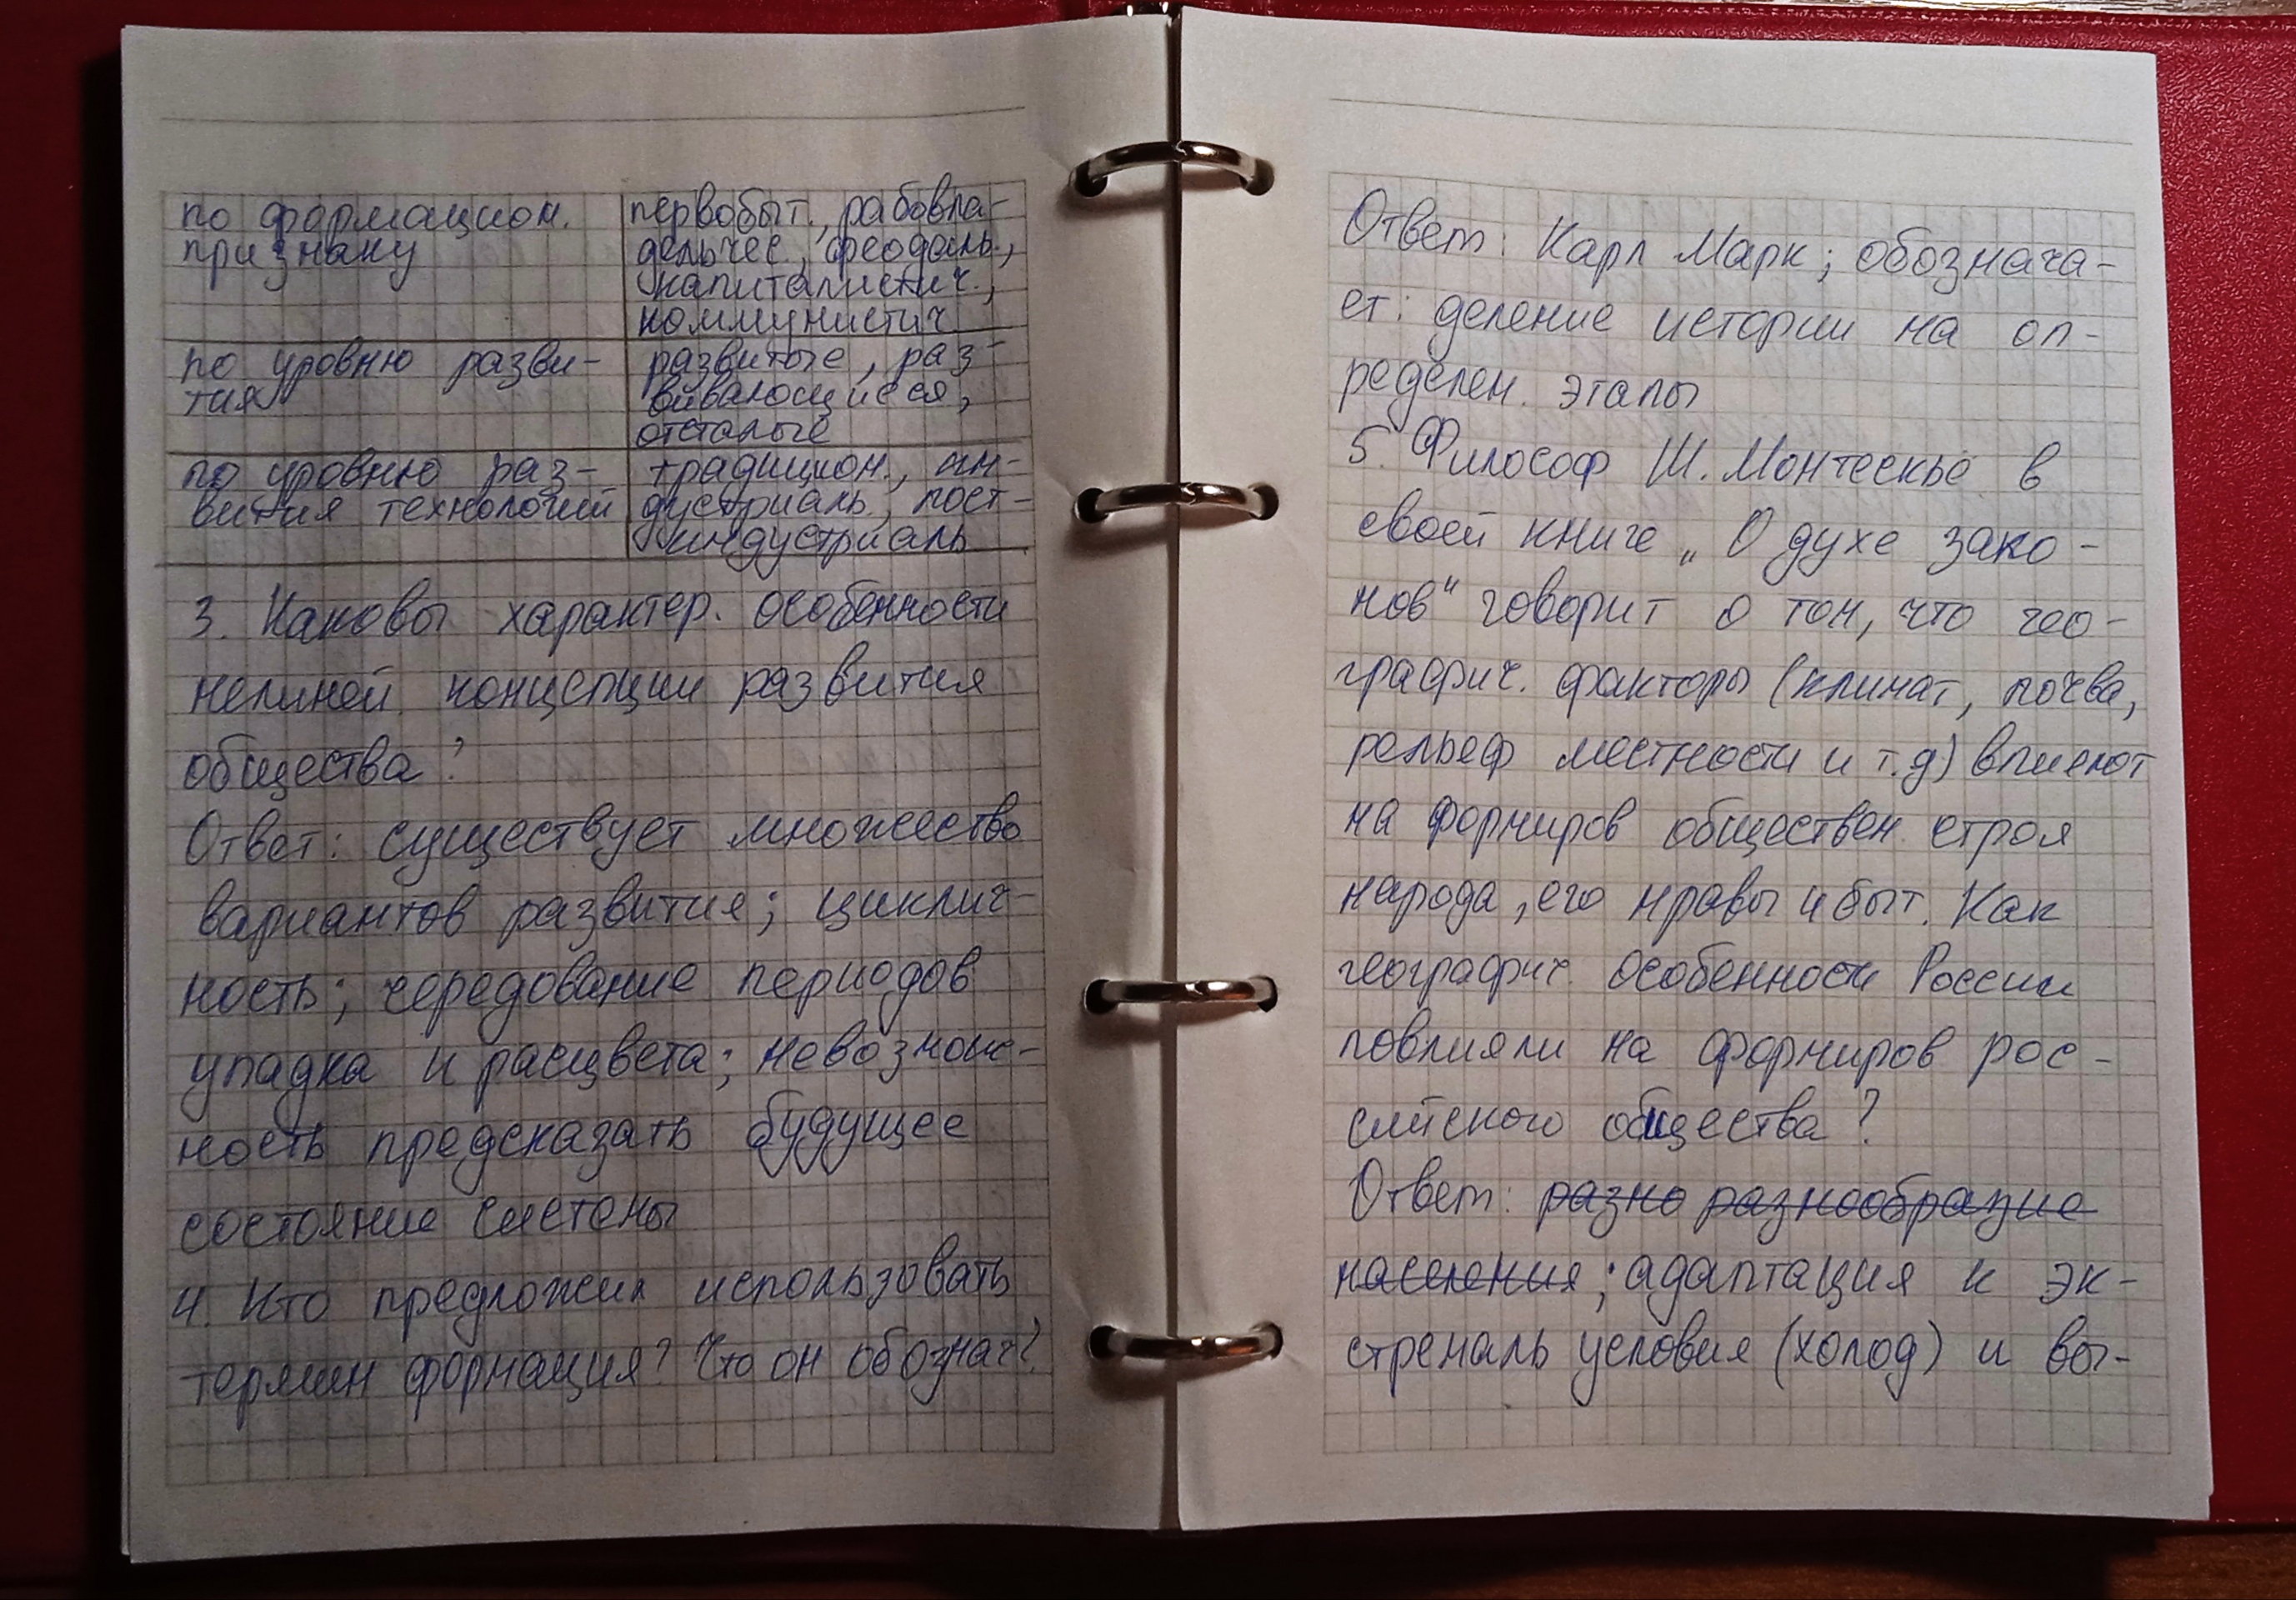 по формацион. первобыт., рабовла-
признаку дельчес., феодаль.,
капиталистич.,
коммунистич
по уровню разви- развитые, раз-
тия вивающиеся,
отсталые
по уровню раз- традицион., ин-
вития технологий дустриаль., пост-
индустриаль
3. Каковы характер. особенности
нелиней. концепции развития
общества?
Ответ: существует множество
вариантов развития; циклич-
ность; чередование периодов
упадка и расцвета; невозмож-
ность предсказать будущее
состояние системы
4. Кто предложил использовать
термин формация? Что он обознач?
Ответ: Карл Марк; обознача-
ет: деление истории на оп-
ределен. этапы
5. Философ Ш. Монтескьё в
своей книге „О духе зако-
нов“ говорит о том, что гео-
графич. факторы (климат, почва,
рельеф местности и т.д) влияют
на формиров обществен. строя
народа, его нравы и быт. Как
географич. особенности России
повлияли на формиров рос-
сийского общества?
Ответ: разно разнообразие
населения; адаптация к эк-
стремаль условия (холод) и вы-